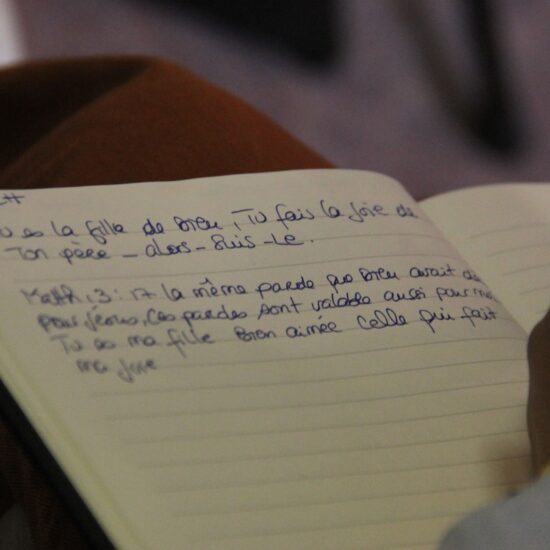 u es la fille de Dieu, Tu fais la Joie de
Ton père _ alors _ suis _ Le.
Matth, 3: 17 la même parole que Dieu avait di
pour Jésus, Ces paroles sont valables aussi pour moi
Tu es ma fille Bien aimée celle qui fait
ma Joie